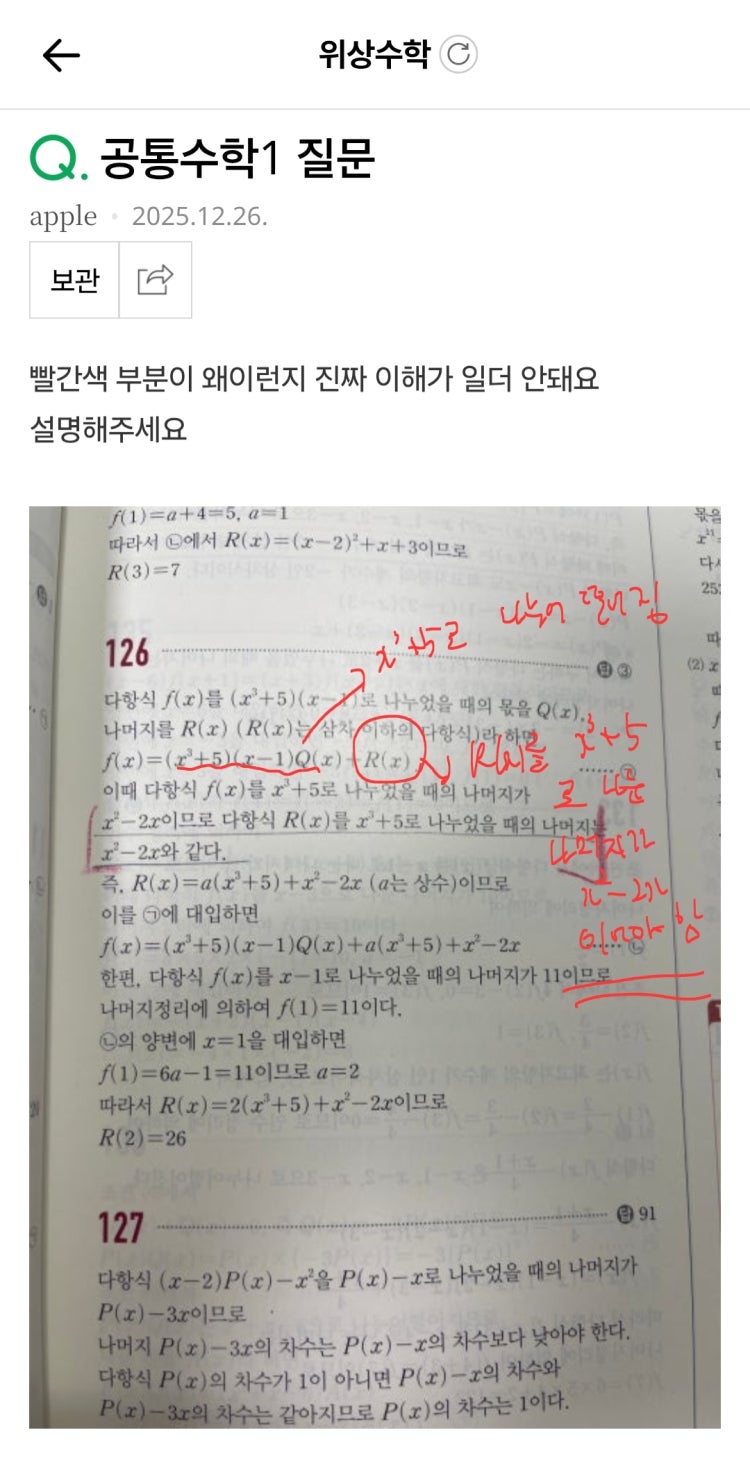 위상수학
Q. 공통수학1 질문
apple • 2025.12.26.
보관
빨간색 부분이 왜이런지 진짜 이해가 일더 안돼요
설명해주세요
f(1)=a+4=5, a=1
따라서 ㉡에서 R(x)=(x-2)²+x+3이므로
R(3)=7
x³+5로 나누어 떨어짐
126 답 ③
(2) x
다항식 f(x)를 (x³+5)(x-1)로 나누었을 때의 몫을 Q(x),
나머지를 R(x) (R(x)는 삼차 이하의 다항식)라 하면
f(x)=(x³+5)(x-1)Q(x)+R(x) ...... ㉠
R(x)를 x³+5
로 나눈
나머지가
x²-2x
이어야 함
이때 다항식 f(x)를 x³+5로 나누었을 때의 나머지가
x²-2x이므로 다항식 R(x)를 x³+5로 나누었을 때의 나머지는
x²-2x와 같다.
즉, R(x)=a(x³+5)+x²-2x (a는 상수)이므로
이를 ㉠에 대입하면
f(x)=(x³+5)(x-1)Q(x)+a(x³+5)+x²-2x ...... ㉡
한편, 다항식 f(x)를 x-1로 나누었을 때의 나머지가 11이므로
나머지정리에 의하여 f(1)=11이다.
㉡의 양변에 x=1을 대입하면
f(1)=6a-1=11이므로 a=2
따라서 R(x)=2(x³+5)+x²-2x이므로
R(2)=26
127 답 91
다항식 (x-2)P(x)-x²을 P(x)-x로 나누었을 때의 나머지가
P(x)-3x이므로
나머지 P(x)-3x의 차수는 P(x)-x의 차수보다 낮아야 한다.
다항식 P(x)의 차수가 1이 아니면 P(x)-x의 차수와
P(x)-3x의 차수는 같아지므로 P(x)의 차수는 1이다.